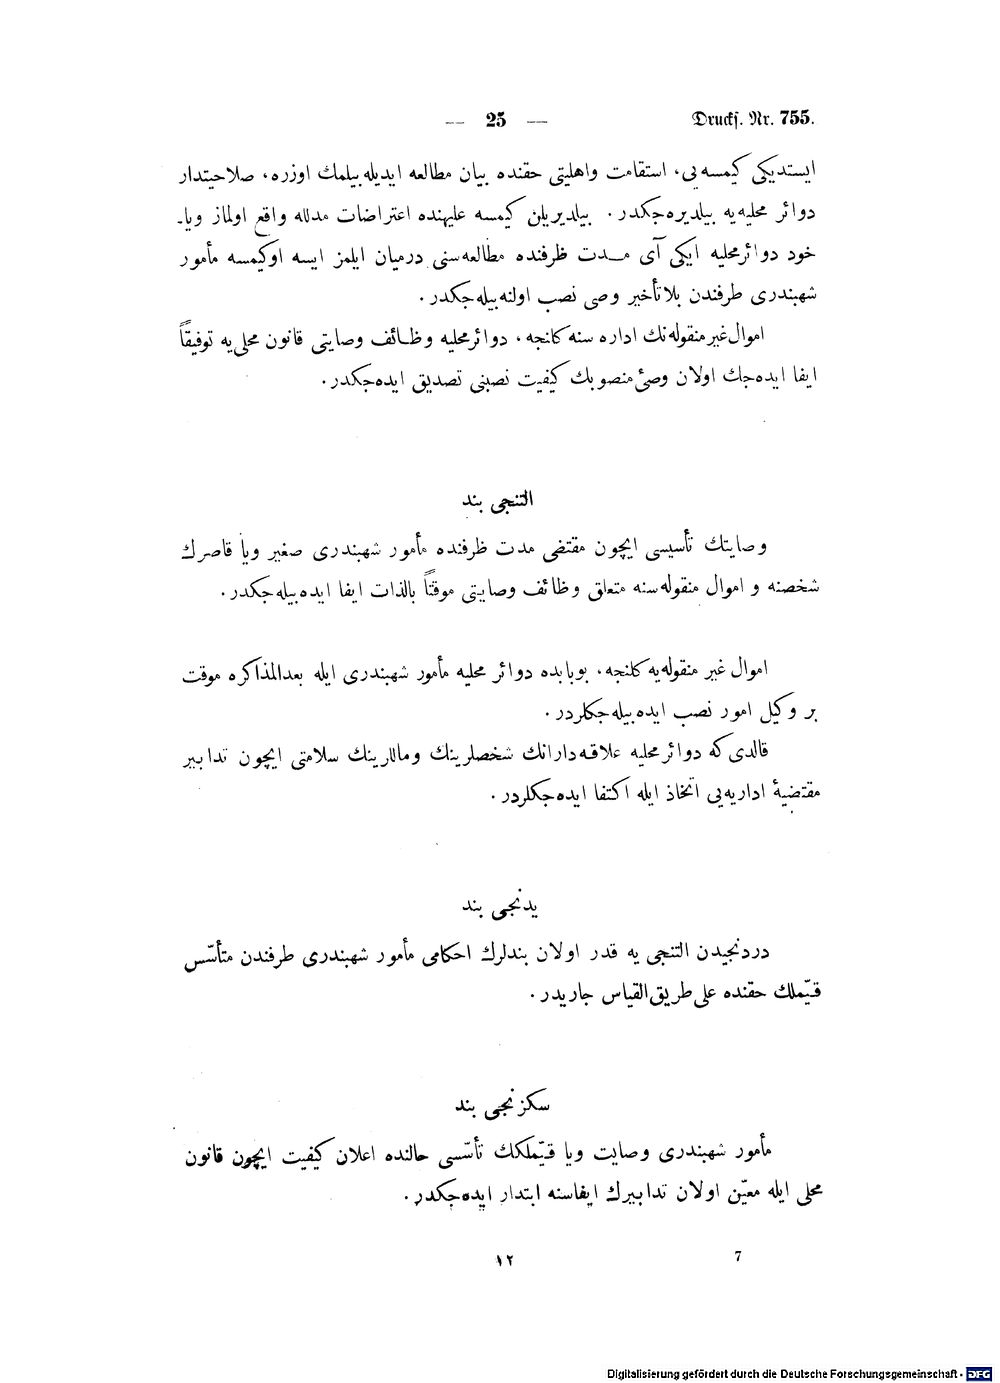 — 25 —
Drucks. Nr. 755.
ایستدیكی كیمسه‌یی، استقامت واهلیتی حقنده بیان مطالعه ایدیله بیلمك اوزره، صلاحیتدار
دوائر محلیه‌یه بیلدیره‌جكدر. بیلدیریلن كیمسه علیهنده اعتراضات مدلله واقع اولماز ویا۔
خود دوائر محلیه ایكی آی مدت ظرفنده مطالعه‌سنی درمیان ایلمز ایسه اوكیمسه مأمور
شهبندری طرفندن بلاتأخیر وصی نصب اولنه‌بیله‌جكدر.
اموال غیر منقوله‌نك اداره سنه كلنجه، دوائر محلیه وظائف وصایتی قانون محلی‌یه توفیقاً
ایفا ایده‌جك اولان وصئ منصوبك كیفیت نصبنی تصدیق ایده‌جكدر.
التنجی بند
وصایتك تأسیسی ایچون مقتضی مدت ظرفنده مأمور شهبندری صغیر ویا قاصرك
شخصنه و اموال منقوله‌سنه متعلق وظائف وصایتی موقتاً بالذات ایفا ایده‌بیله‌جكدر.
اموال غیر منقوله‌یه كلنجه، بوبابده دوائر محلیه مأمور شهبندری ایله بعدالمذاكره موقت
بر وكیل امور نصب ایده‌بیله‌جكلردر.
قالدی كه دوائر محلیه علاقه‌دارانك شخصلرینك وماللرینك سلامتی ایچون تدابیر
مقتضیهٔ اداریه‌یی اتخاذ ایله اكتفا ایده‌جكلردر.
یدنجی بند
دردنجیدن التنجی یه قدر اولان بندلرك احكامی مأمور شهبندری طرفندن متأسّس
قیّملك حقنده علی طریق القیاس جاریدر.
سكزنجی بند
مأمور شهبندری وصایت ویا قیّملكك تأسّسی حالنده اعلان كیفیت ایچون قانون
محلی ایله معیّن اولان تدابیرك ایفاسنه ابتدار ایده‌جكدر.
١٢
7
Digitalisierung gefördert durch die Deutsche Forschungsgemeinschaft - DFG